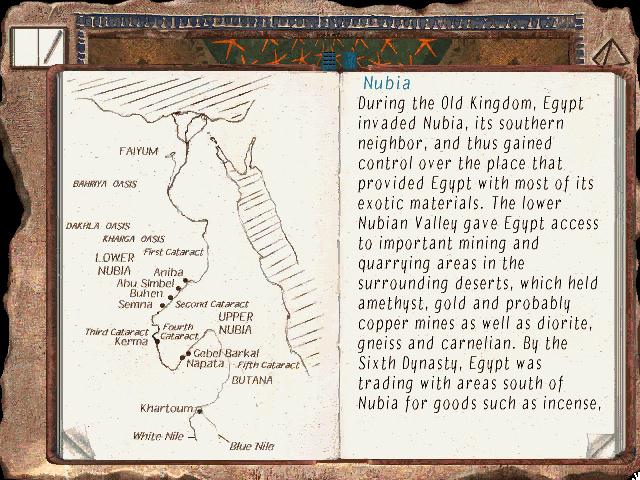 FAIYUM
BAHRIYA OASIS
DAKHLA OASIS
KHARGA OASIS
First Cataract
LOWER
NUBIA
Aniba
Abu Simbel
Buhen
Semna
Second Cataract
UPPER
NUBIA
Third Cataract
Fourth
Cataract
Kerma
Gebel Barkal
Napata
Fifth Cataract
BUTANA
Khartoum
White Nile
Blue Nile
Nubia
During the Old Kingdom, Egypt
invaded Nubia, its southern
neighbor, and thus gained
control over the place that
provided Egypt with most of its
exotic materials. The lower
Nubian Valley gave Egypt access
to important mining and
quarrying areas in the
surrounding deserts, which held
amethyst, gold and probably
copper mines as well as diorite,
gneiss and carnelian. By the
Sixth Dynasty, Egypt was
trading with areas south of
Nubia for goods such as incense,